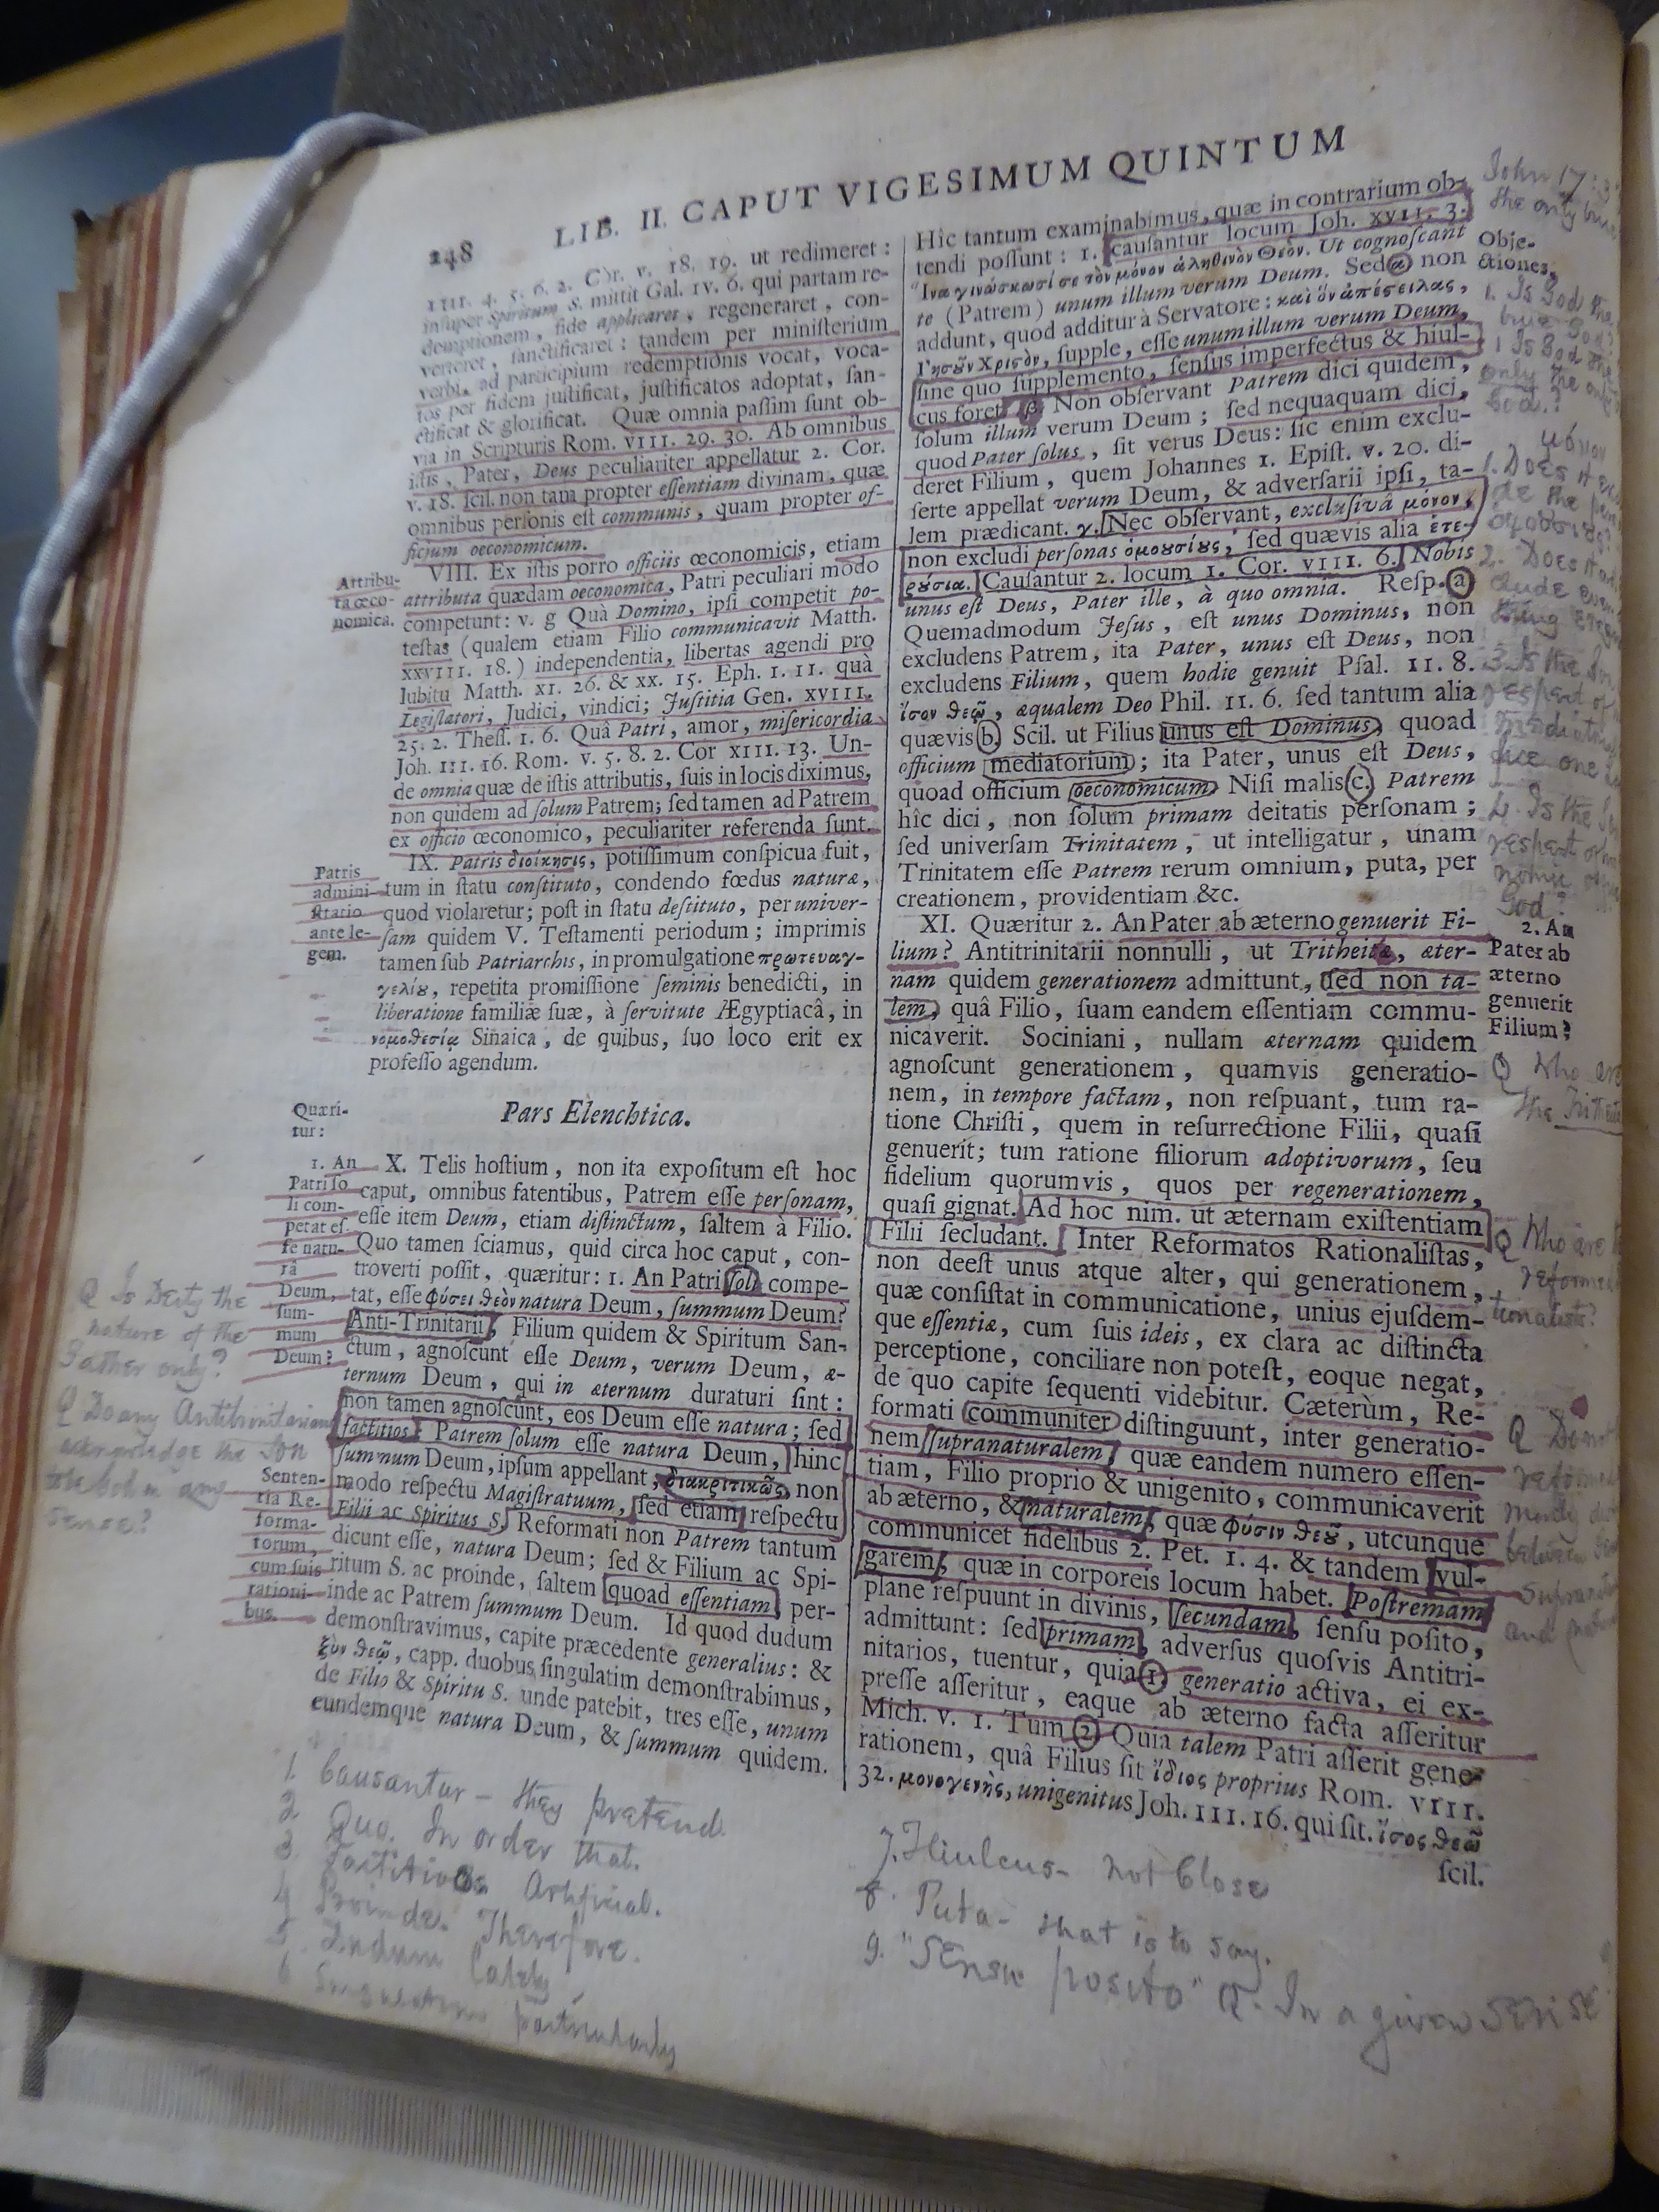 248 LIB. II. CAPUT VIGESIMUM QUINTUM
IIII. 4. 5. 6. 2. Cor. v. 18. 19. ut redimeret :
inſuper Spiritum S. mittit Gal. IV. 6. qui partam re-
demptionem, fide applicaret, regeneraret, con-
verteret, ſanctificaret : tandem per miniſterium
verbi, ad participium redemptionis vocat, voca-
tos per fidem juſtificat, juſtificatos adoptat, ſan-
ctificat & glorificat. Quæ omnia paſſim ſunt ob-
via in Scripturis Rom. VIII. 29. 30. Ab omnibus
iſtis, Pater, Deus peculiariter appellatur 2. Cor.
v. 18. ſcil. non tam propter eſſentiam divinam, quæ
omnibus perſonis eſt communis, quam propter of-
ficium œconomicum.
Attribu-
ta œco-
nomica.
VIII. Ex iſtis porro officiis œconomicis, etiam
attributa quædam œconomica, Patri peculiari modo
competunt: v. g Quà Domino, ipſi competit po-
teſtas (qualem etiam Filio communicavit Matth.
XXVIII. 18.) independentia, libertas agendi pro
lubitu Matth. XI. 26. & XX. 15. Eph. I. 11. quà
Legiſlatori, Judici, vindici; Juſtitia Gen. XVIII.
25. 2. Theſſ. I. 6. Quâ Patri, amor, miſericordia
Joh. III. 16. Rom. v. 5. 8. 2. Cor XIII. 13. Un-
de omnia quæ de iſtis attributis, ſuis in locis diximus,
non quidem ad ſolum Patrem; ſed tamen ad Patrem
ex officio œconomico, peculiariter referenda ſunt.
Patris
admini-
ſtratio
ante le-
gem.
IX. Patris διοίκησις, potiſſimum conſpicua fuit,
tum in ſtatu conſtituto, condendo fœdus naturæ,
quod violaretur; poſt in ſtatu deſtituto, per univer-
ſam quidem V. Teſtamenti periodum; imprimis
tamen ſub Patriarchis, in promulgatione πρωτευαγ-
γελίȣ, repetita promiſſione ſeminis benedicti, in
liberatione familiæ ſuæ, à ſervitute Ægyptiacâ, in
νομοθεσίᾳ Sinaica, de quibus, ſuo loco erit ex
profeſſo agendum.
Quæri-
tur:
Pars Elenchtica.
1. An
Patri ſo-
li com-
petat eſ-
ſe natu-
ra
Deum,
ſum-
mum
Deum?
X. Telis hoſtium, non ita expoſitum eſt hoc
caput, omnibus fatentibus, Patrem eſſe perſonam,
eſſe item Deum, etiam diſtinctum, ſaltem à Filio.
Quo tamen ſciamus, quid circa hoc caput, con-
troverti poſſit, quæritur: 1. An Patri ſoli compe-
tat, eſſe φύσει θεὸν natura Deum, ſummum Deum?
Anti-Trinitarii, Filium quidem & Spiritum San-
ctum, agnoſcunt eſſe Deum, verum Deum, æ-
ternum Deum, qui in æternum duraturi ſint :
non tamen agnoſcunt, eos Deum eſſe natura; ſed
factitios: Patrem ſolum eſſe natura Deum, hinc
ſummum Deum, ipſum appellant, διακριτικῶς, non
modo reſpectu Magiſtratuum, ſed etiam reſpectu
Filii ac Spiritus S. Reformati non Patrem tantum
dicunt eſſe, natura Deum; ſed & Filium ac Spi-
ritum S. ac proinde, ſaltem quoad eſſentiam, per-
inde ac Patrem ſummum Deum. Id quod dudum
demonſtravimus, capite præcedente generalius: &
ξὺν θεῷ, capp. duobus ſingulatim demonſtrabimus,
de Filio & Spiritu S. unde patebit, tres eſſe, unum
eundemque natura Deum, & ſummum quidem.
Senten-
tia Re-
forma-
torum,
cum ſuis
rationi-
bus.
Q Is Deity the
nature of the
Father only?
Q Do any Antitrinitarians
acknowledge the Son
to be God in any
sense?
1. Causantur - they pretend.
2 Quo. In order that.
3 Factitios Artificial.
4 Proinde. Therefore.
5 Dudum Lately
6 Singulatim particularly
Hîc tantum examinabimus, quæ in contrarium ob-
tendi poſſunt : 1. cauſantur locum Joh. XVII. 3.
Ἵνα γινώσκωσί σε τὸν μόνον ἀληθινὸν Θεὸν. Ut cognoſcant
te (Patrem) unum illum verum Deum. Sed α non
addunt, quod additur à Servatore: καὶ ὃν ἀπέστειλας,
Ιησοῦν Χριστὸν, ſupple, eſſe unum illum verum Deum,
ſine quo ſupplemento, ſenſus imperfectus & hiul-
cus foret β. Non obſervant Patrem dici quidem,
ſolum illum verum Deum ; ſed nequaquam dici,
quod Pater ſolus, ſit verus Deus: ſic enim exclu-
deret Filium, quem Johannes 1. Epiſt. v. 20. di-
ſerte appellat verum Deum, & adverſarii ipſi, ta-
lem prædicant. γ. Nec obſervant, excluſivâ μόνον,
non excludi perſonas ὁμοουσίȣς, ſed quævis alia ἑτε-
ρȣσια. Cauſantur 2. locum 1. Cor. VIII. 6. Nobis
unus eſt Deus, Pater ille, à quo omnia. Reſp. a
Quemadmodum Jeſus, eſt unus Dominus, non
excludens Patrem, ita Pater, unus eſt Deus, non
excludens Filium, quem hodie genuit Pſal. II. 8.
ἴσον θεῷ, æqualem Deo Phil. II. 6. ſed tantum alia
quævis b. Scil. ut Filius unus eſt Dominus, quoad
officium mediatorium; ita Pater, unus eſt Deus,
quoad officium œconomicum. Niſi malis c. Patrem
hîc dici, non ſolum primam deitatis perſonam ;
ſed univerſam Trinitatem, ut intelligatur, unam
Trinitatem eſſe Patrem rerum omnium, puta, per
creationem, providentiam &c.
XI. Quæritur 2. An Pater ab æterno genuerit Fi-
lium? Antitrinitarii nonnulli, ut Tritheitæ, æter-
nam quidem generationem admittunt, ſed non ta-
lem, quâ Filio, ſuam eandem eſſentiam commu-
nicaverit. Sociniani, nullam æternam quidem
agnoſcunt generationem, quamvis generatio-
nem, in tempore factam, non reſpuant, tum ra-
tione Chriſti, quem in reſurrectione Filii, quaſi
genuerit; tum ratione filiorum adoptivorum, ſeu
fidelium quorumvis, quos per regenerationem,
quaſi gignat. Ad hoc nim. ut æternam exiſtentiam
Filii ſecludant. Inter Reformatos Rationaliſtas,
non deeſt unus atque alter, qui generationem,
quæ conſiſtat in communicatione, unius ejuſdem-
que eſſentiæ, cum ſuis ideis, ex clara ac diſtincta
perceptione, conciliare non poteſt, eoque negat,
de quo capite ſequenti videbitur. Cæterùm, Re-
formati communiter diſtinguunt, inter generatio-
nem ſupranaturalem, quæ eandem numero eſſen-
tiam, Filio proprio & unigenito, communicaverit
ab æterno, & naturalem, quæ φύσιν θεȣ͂, utcunque
communicet fidelibus 2. Pet. I. 4. & tandem vul-
garem, quæ in corporeis locum habet. Poſtremam
plane reſpuunt in divinis, ſecundam, ſenſu poſito,
admittunt: ſed primam, adverſus quoſvis Antitri-
nitarios, tuentur, quia 1. generatio activa, ei ex-
preſſe aſſeritur, eaque ab æterno facta aſſeritur
Mich. v. 1. Tum 2. Quia talem Patri aſſerit gene-
rationem, quâ Filius ſit ἴδιος proprius Rom. VIII.
32. μονογενὴς, unigenitus Joh. III. 16. qui ſit. ἴσος θεῷ
ſcil.
John 17:3
the only true
Obje-
ctiones.
1. Is God the
true God?
1 Is God the
only the only
God?
μόνον
1. Does it
2. Does it
3 Is the Son
respect of
4. Is the Son
respect of
God?
2. An
Pater ab
æterno
genuerit
Filium?
Q Who are
the Tritheit
Q Who are
reformed
tionalists?
Q Do
reformed
between
supranatural
and natural
7. Hiulcus - not Close
8. Puta - that is to say.
9. "Sensu posito" Q. In a given sense